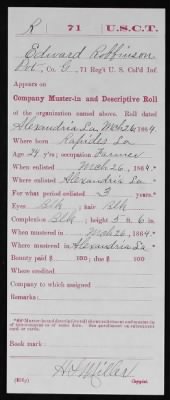 R | 71 | U.S.C.T.
Edward Robbinson
Pvt., Co. G, 71 Reg't U. S. Col'd Inf.
Appears on
Company Muster-in and Descriptive Roll
of the organization named above. Roll dated
Alexandria La Mch 26, 1864.
Where born Rapides La
Age 24 y'rs; occupation Farmer
When enlisted Mch 26, 1864.
Where enlisted Alexandria La
For what period enlisted 3 years.
Eyes Blk; hair Blk
Complexion Blk; height 5 ft. 6 in.
When mustered in Mch 26, 1864.
Where mustered in Alexandria La
Bounty paid $ 100; due $ 100
Where credited
Company to which assigned
Remarks:
Book mark:
H L Miller
Copyist.